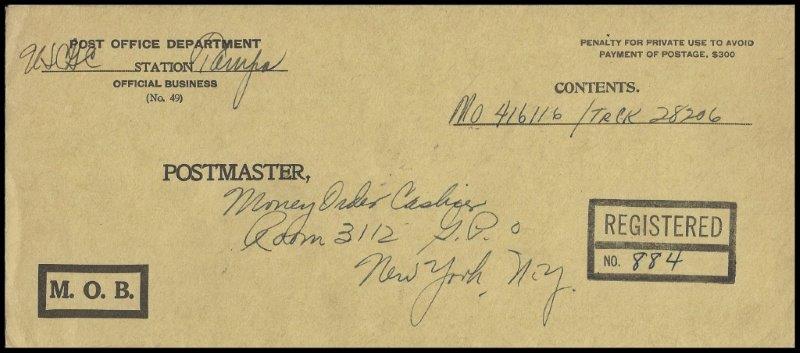 POST OFFICE DEPARTMENT
USCGC STATION Tampa
OFFICIAL BUSINESS
(No. 49)
PENALTY FOR PRIVATE USE TO AVOID
PAYMENT OF POSTAGE, $300
CONTENTS.
MO 416116 / TRCK 28206
POSTMASTER,
Money Order Cashier
Room 3112 G.P.O
New York, N.Y.
REGISTERED
NO. 884
M. O. B.